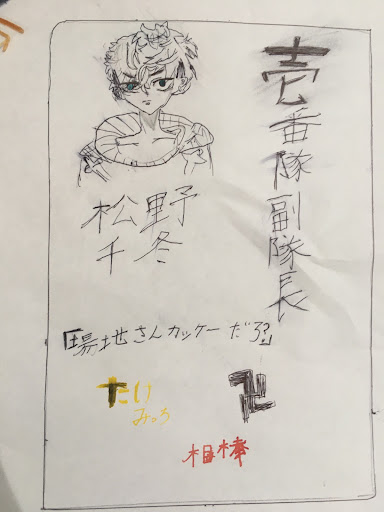 壱番隊副隊長
松野
千冬
「場地さんカッケーだろ?」
たけ
みっち
卍
相棒